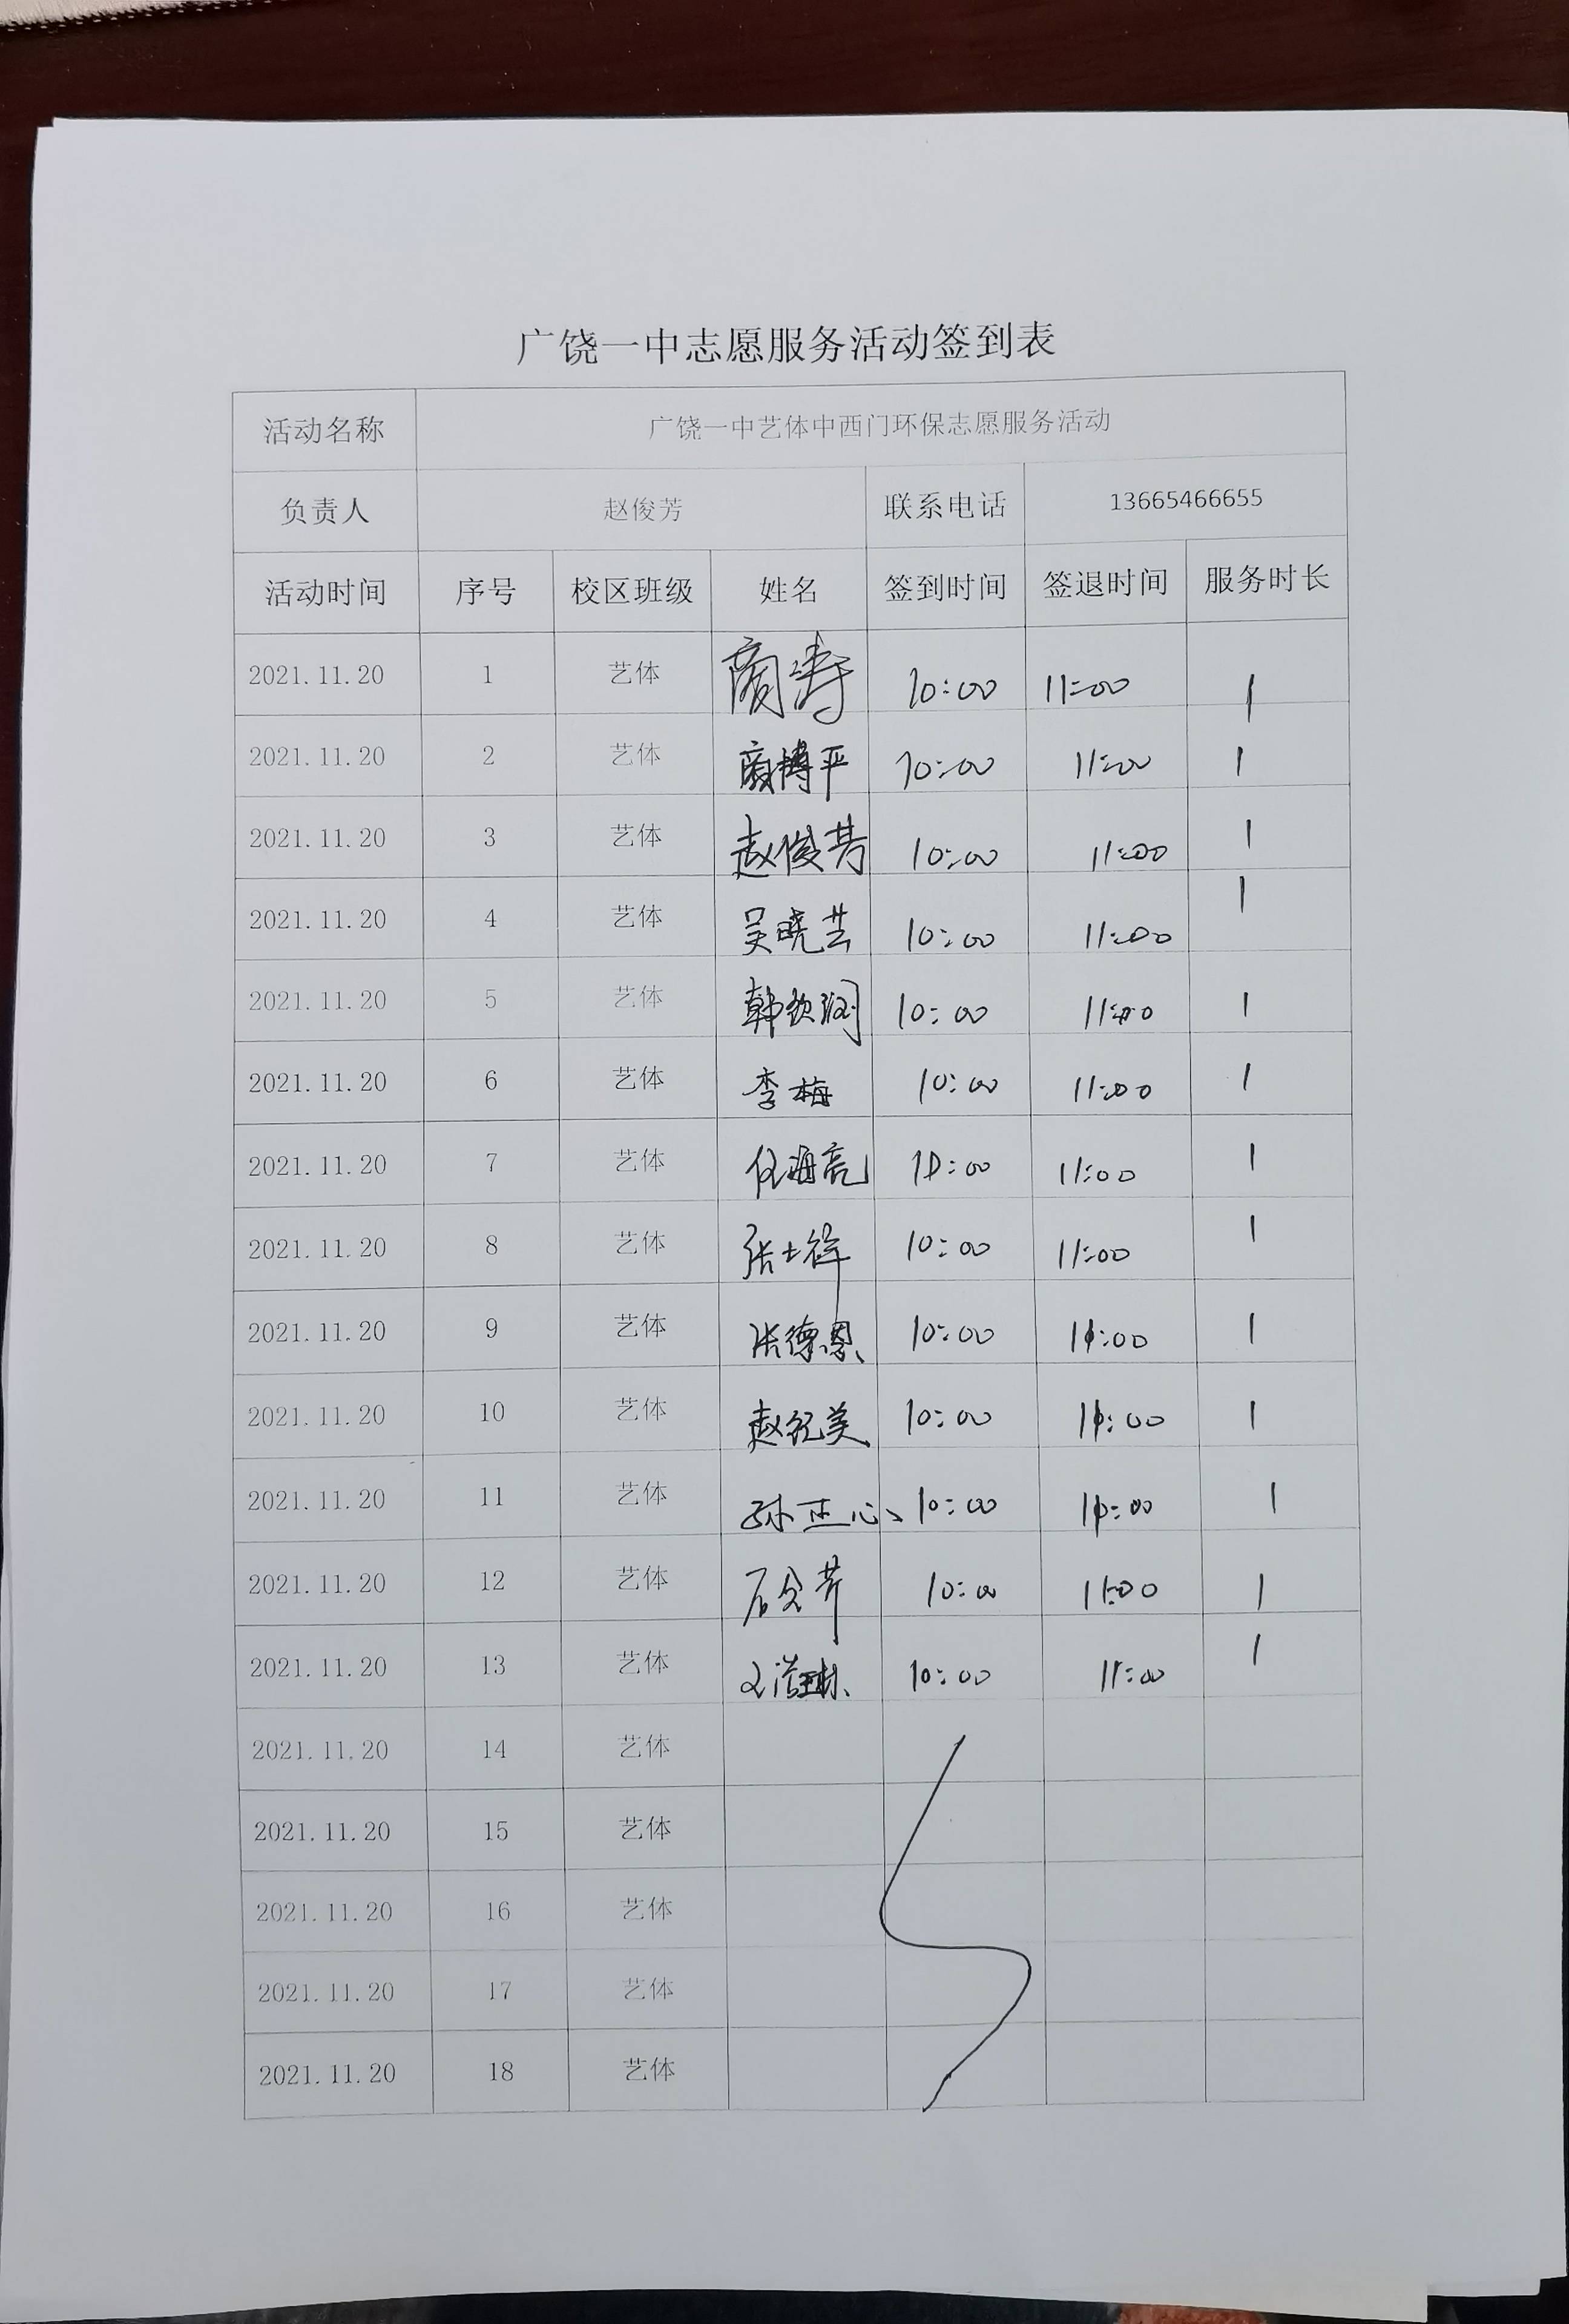 广饶一中志愿服务活动签到表
活动名称 广饶一中艺体中西门环保志愿服务活动
负责人 赵俊芳 联系电话 13665466655
活动时间 序号 校区班级 姓名 签到时间 签退时间 服务时长
2021.11.20 1 艺体 商涛 10:00 11:00 1
2021.11.20 2 艺体 商博平 10:00 11:00 1
2021.11.20 3 艺体 赵俊芳 10:00 11:00 1
2021.11.20 4 艺体 吴晓芸 10:00 11:00 1
2021.11.20 5 艺体 韩钦润 10:00 11:00 1
2021.11.20 6 艺体 李梅 10:00 11:00 1
2021.11.20 7 艺体 任海亮 10:00 11:00 1
2021.11.20 8 艺体 张士祥 10:00 11:00 1
2021.11.20 9 艺体 张德恩 10:00 11:00 1
2021.11.20 10 艺体 赵纪美 10:00 11:00 1
2021.11.20 11 艺体 孙正心 10:00 11:00 1
2021.11.20 12 艺体 10:00 11:00 1
2021.11.20 13 艺体 10:00 11:00 1
2021.11.20 14 艺体
2021.11.20 15 艺体
2021.11.20 16 艺体
2021.11.20 17 艺体
2021.11.20 18 艺体